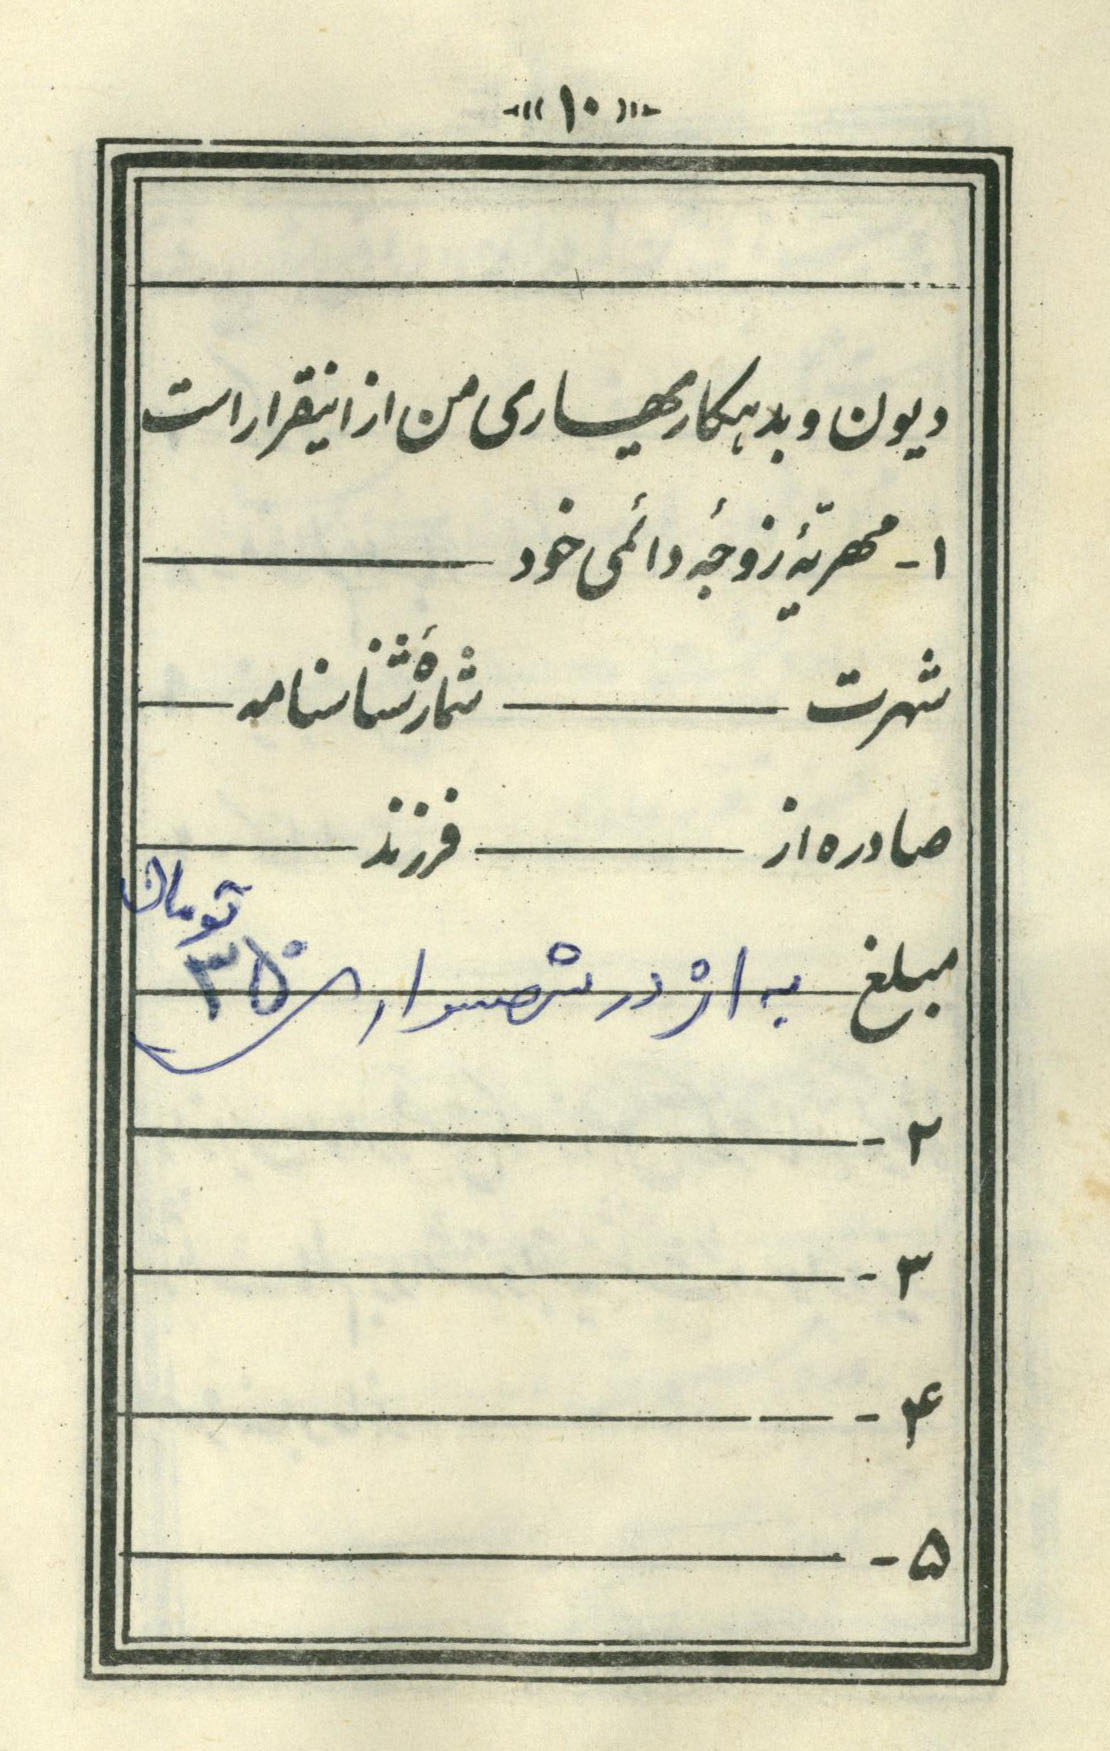 ۱۰
دیون و بدهکاریهای من از اینقرار است
۱- مهریّهٔ زوجهٔ دائمی خود
شهرت شمارهٔ شناسنامه
صادره از فرزند
مبلغ به اژدر شهسواری ۳۵۰ تومان
۲-
۳-
۴-
۵-